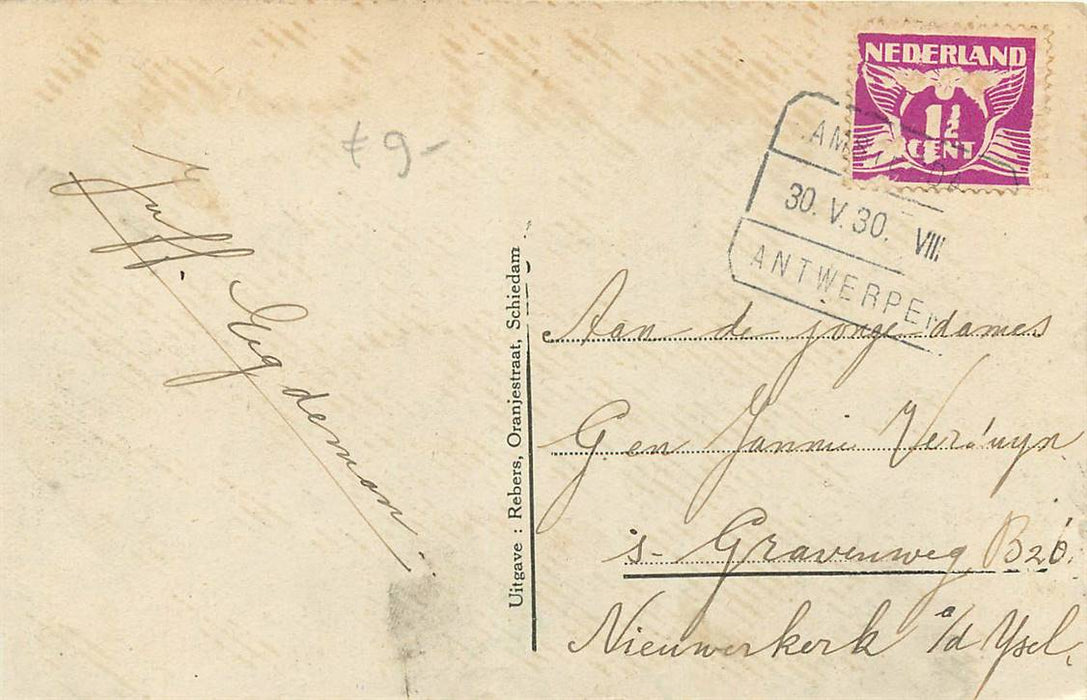 NEDERLAND
1½
CENT
30. V. 30. VIII
ANTWERPEN
€ 9-
Juff. Eigdeman.
Uitgave : Rebers, Oranjestraat, Schiedam
Aan de jonge dames
G en Jannie Verduyn
s-Gravenweg B26.
Nieuwerkerk a/d Ysel.